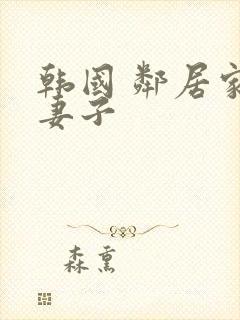 韩国邻居家
妻子
森熏